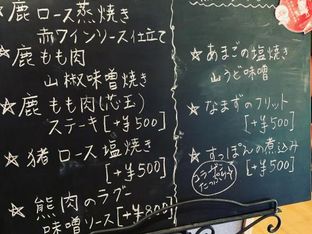 鹿ロース蒸焼き
赤ワインソース仕立て
☆鹿もも肉
山椒味噌焼き
☆鹿もも肉(芯玉)
ステーキ[+¥500]
☆猪ロース塩焼き
[+¥500]
☆熊肉のラグー
味噌ソース[+¥800]
☆あまごの塩焼き
山うど味噌
☆なまずのフリット
[+¥500]
☆すっぽんの煮込み
[+¥500]
コラーゲン
たっぷり